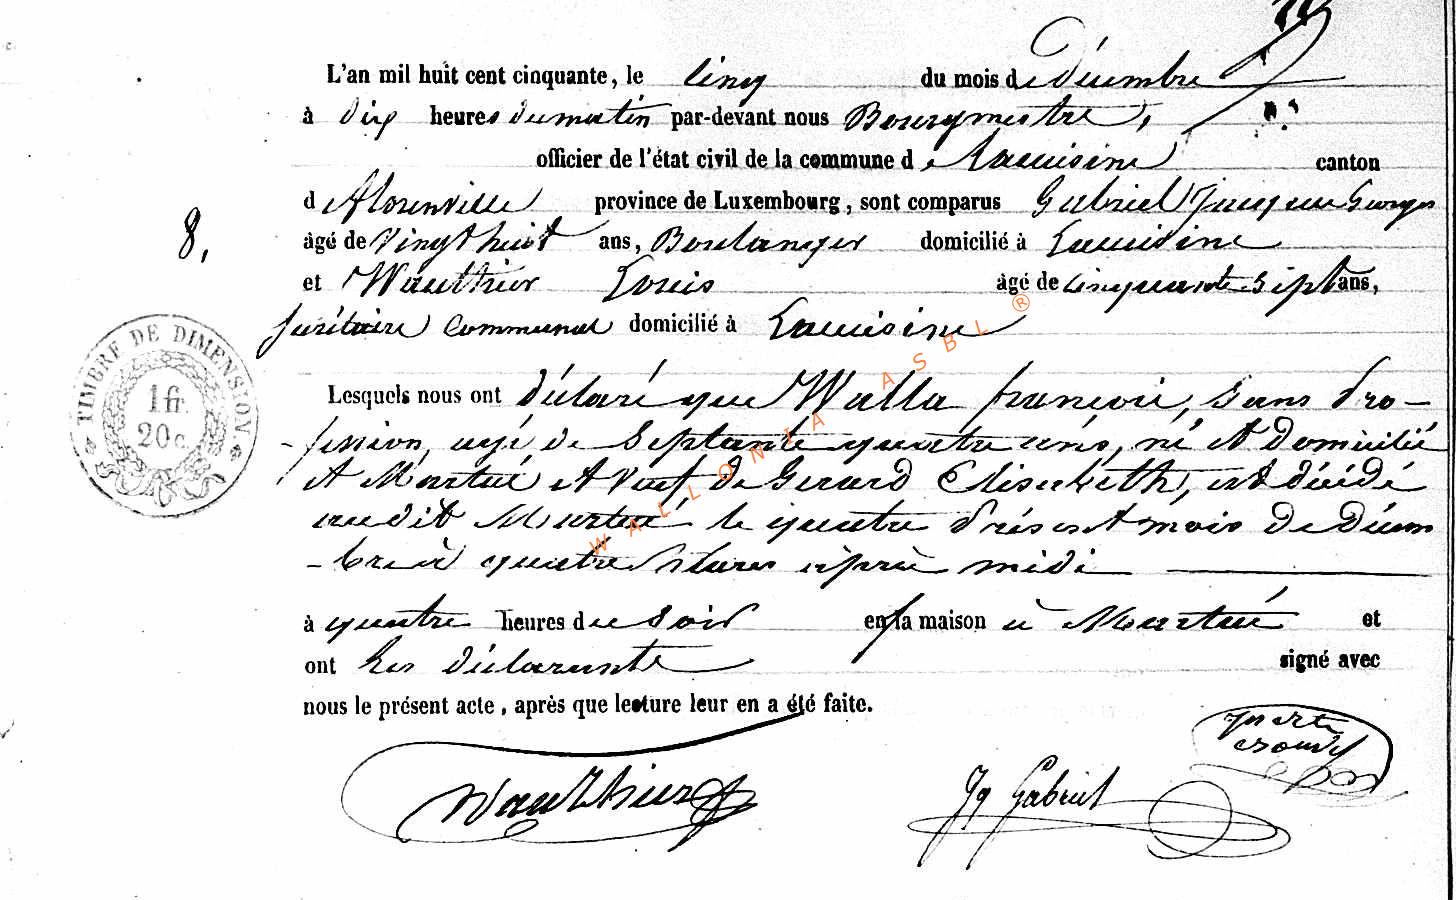 L'an mil huit cent cinquante, le cinq du mois de décembre
à dix heures du matin par-devant nous Bourgmestre,
officier de l'état civil de la commune de Lacuisine canton
de Florenville province de Luxembourg, sont comparus Gabriel Jacques Georges
âgé de vingt huit ans, Boulanger domicilié à Lacuisine
8.
et Wauthier Louis âgé de cinquante sept ans,
secrétaire communal domicilié à Lacuisine
TIMBRE DE DIMENSION
1 fr.
20 c.
Lesquels nous ont déclaré que Walla françois, sans pro-
-fession, agé de septante quatre ans, né et domicilié
à Martué et veuf de Gerard Elisabeth, est décédé
audit Martué le quatre présent mois de décem
-bre à quatre heures après midi
à quatre heures du soir en la maison à Martué et
ont les déclarants signé avec
nous le présent acte, après que lecture leur en a été faite.
Wauthier Jq Gabriel
WALLONIA ASBL ®